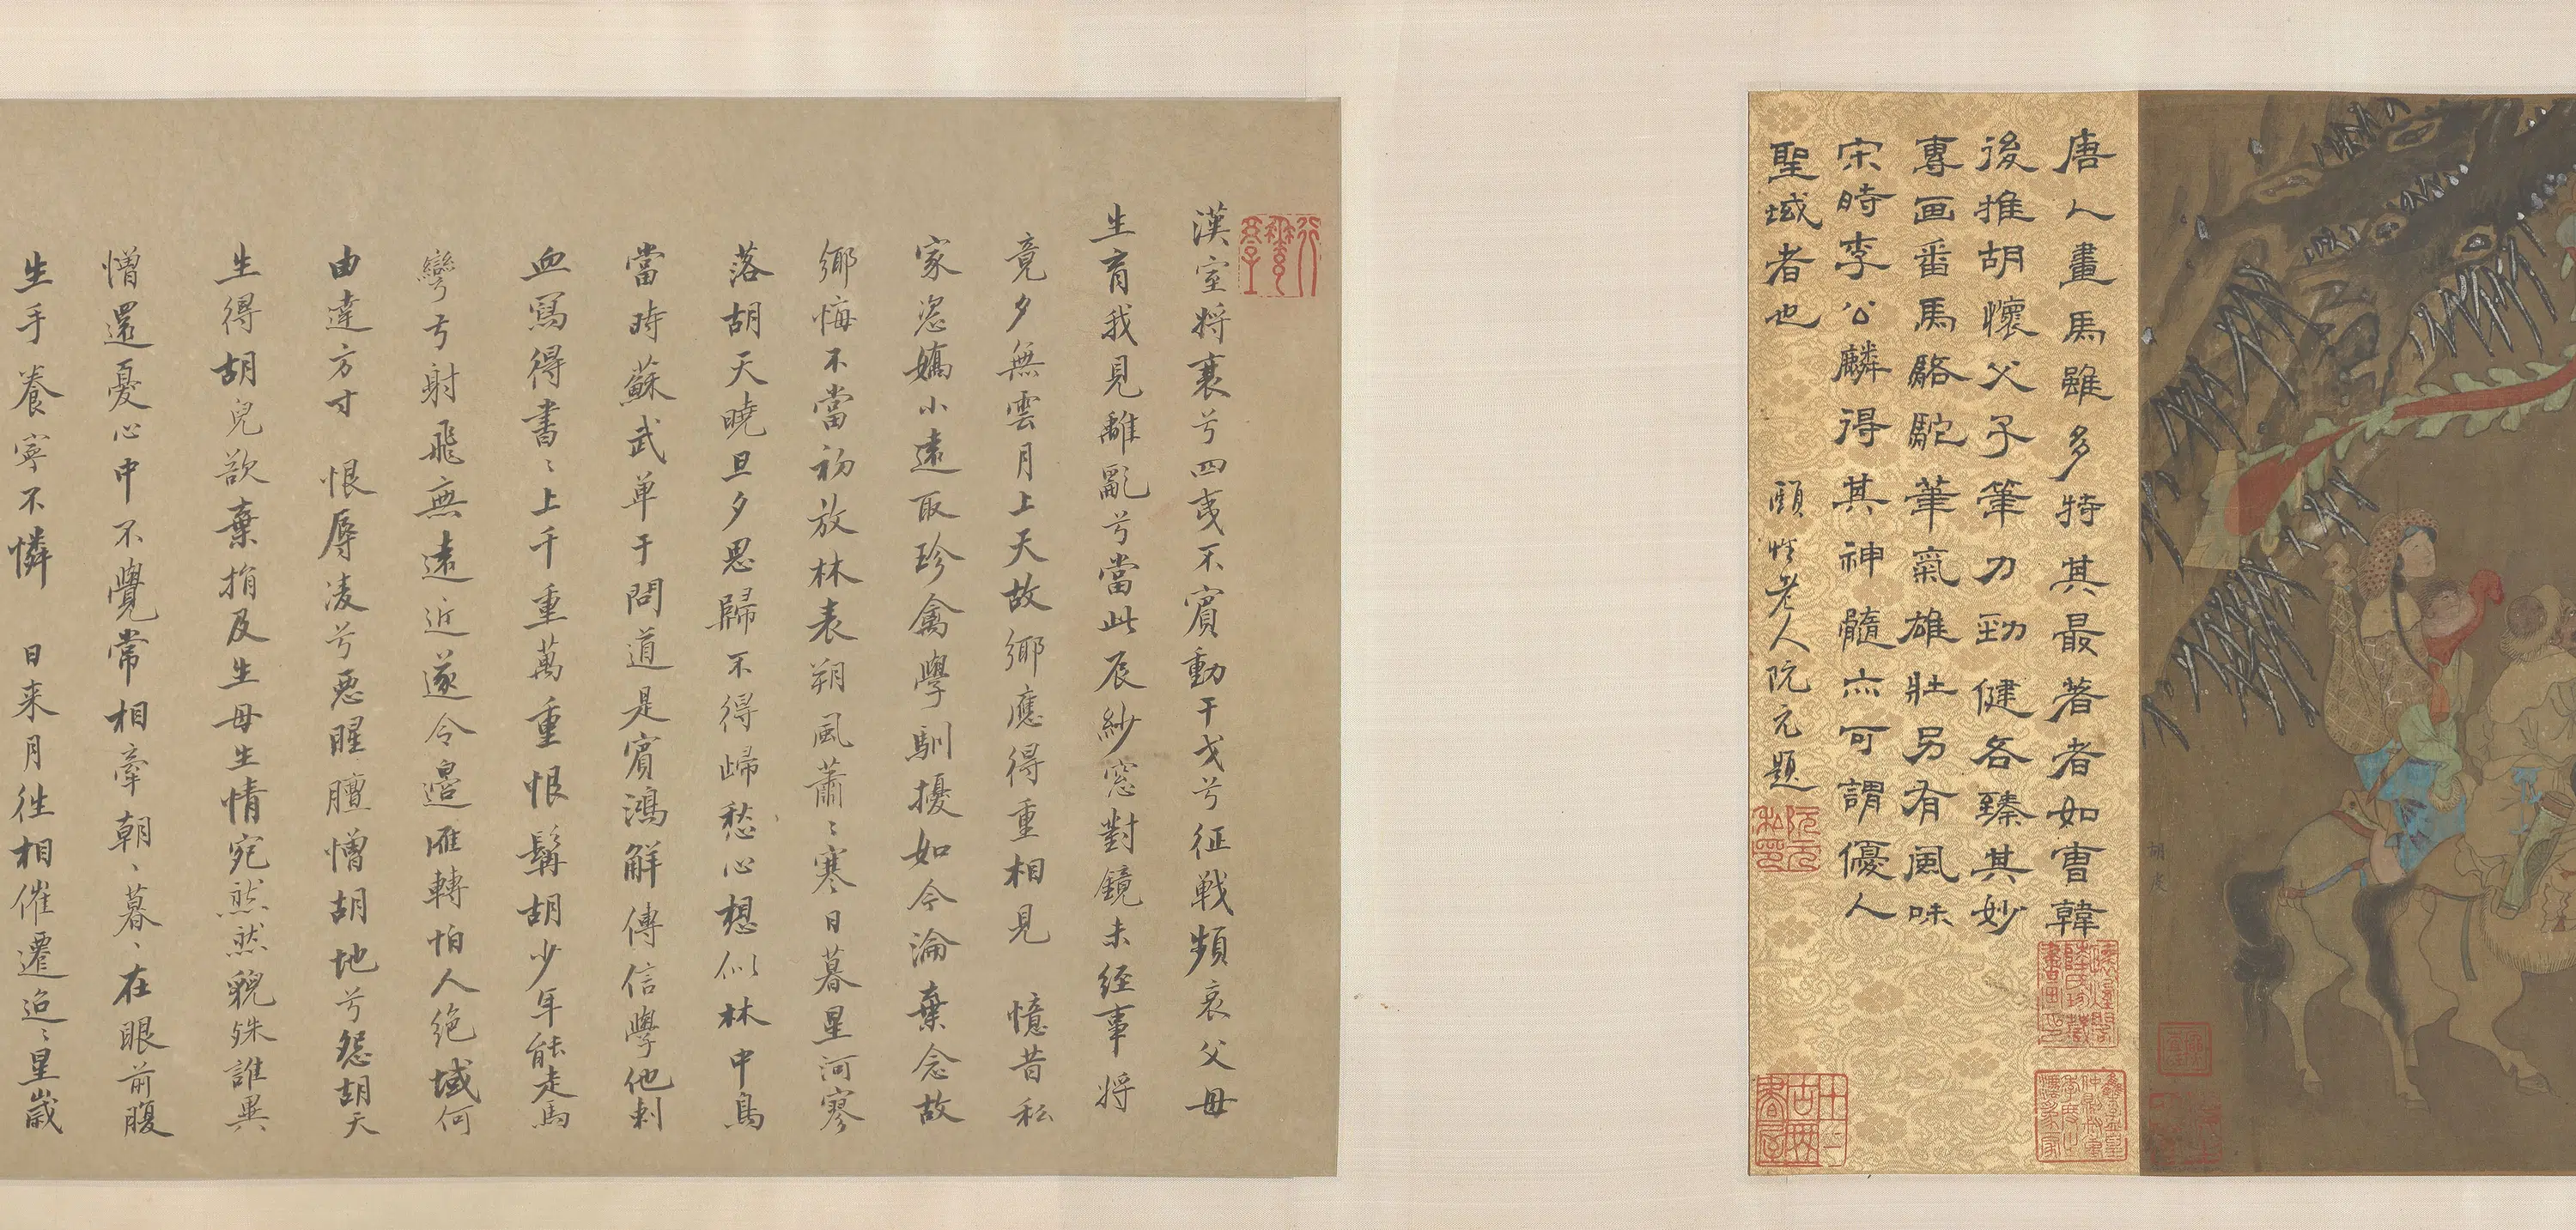 胡虔
唐人畫馬雖多特其最著者如曹韓
後推胡懷父子筆力勁健各臻其妙
專画番馬駱駝筆氣雄壯另有風味
宋時李公麟得其神髓亦可謂優人
聖域者也 頤性老人阮元題
阮元私印
漢室將衰兮四夷不賓動干戈兮征戰頻哀父母
生育我見離亂兮當此辰紗窓對鏡未經事將
竟夕無雲月上天故鄉應得重相見 憶昔私
家恣嬌小遠取珍禽學馴擾如今淪棄念故
鄉悔不當初放林表朔風蕭〻寒日暮星河寥
落胡天曉旦夕思歸不得歸愁心想似林中鳥
當時蘇武單于問道是賓鴻解傳信學他刺
血寫得書〻上千重萬重恨髯胡少年能走馬
彎弓射飛無遠近遂令邉雁轉怕人絕域何
由達方寸 恨辱凌兮惡腥膻憎胡地兮怨胡天
生得胡兒欲棄捐及生母生情宛然然貌殊誰異
憎還憂心中不覺常相牽朝〻暮〻在眼前腹
生手養寧不憐 日来月往相催遷迨〻星歲